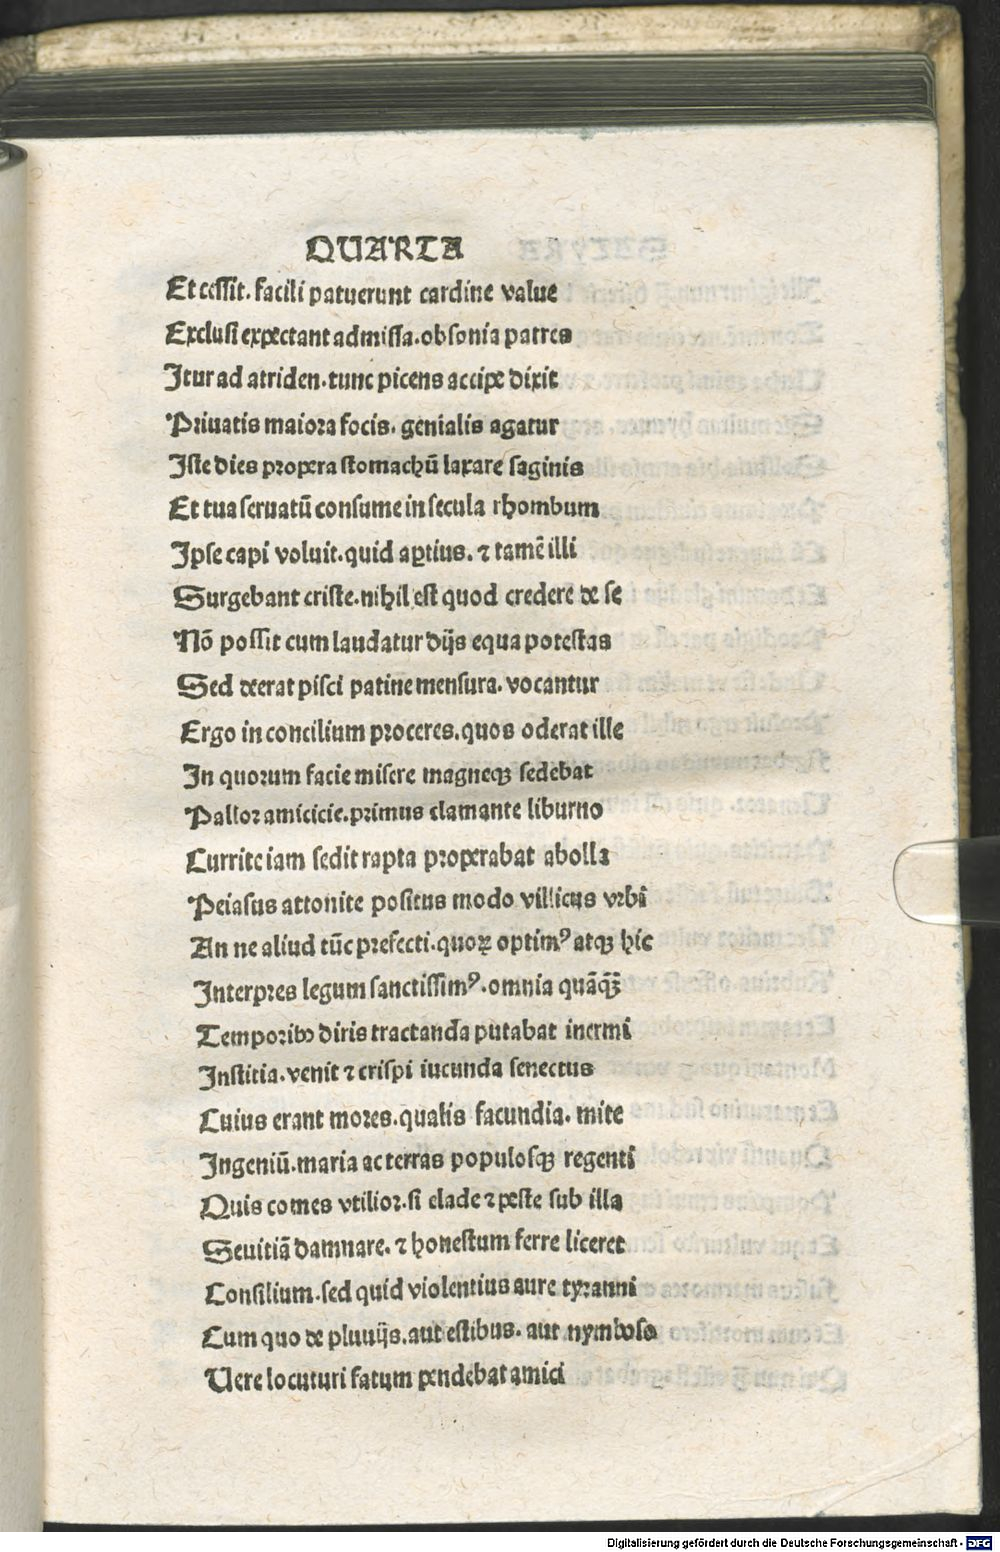 QUARTA
Et cessit. facili patuerunt cardine value
Exclusi expectant admissa. obsonia patres
Itur ad atriden. tunc picens accipe dixit
Priuatis maiora focis. genialis agatur
Iste dies propera stomachū laxare saginis
Et tua seruatū consume in secula rhombum
Ipse capi voluit. quid aptius. ⁊ tamē illi
Surgebant criste. nihil est quod credere de se
Nō possit cum laudatur dijs equa potestas
Sed deerat pisci patine mensura. vocantur
Ergo in concilium proceres. quos oderat ille
In quorum facie misere magneqꝫ sedebat
Pallor amicicie. primus clamante liburno
Currite iam sedit rapta properabat abolla
Peiasus attonite positus modo villicus vrbi
An ne aliud tūc prefecti. quoꝝ optimꝰ atqꝫ hic
Interpres legum sanctissimꝰ. omnia quāqꝫ̄
Temporibꝰ diris tractanda putabat inermi
Institia. venit ⁊ crispi iucunda senectus
Cuius erant mores. qualis facundia. mite
Ingeniū. maria ac terras populosqꝫ regenti
Quis comes vtilior. si clade ⁊ peste sub illa
Seuitiā damnare. ⁊ honestum ferre liceret
Consilium. sed quid violentius aure tyranni
Cum quo de pluuijs. aut estibus. aut nymboso
Vere locuturi fatum pendebat amici
Digitalisierung gefördert durch die Deutsche Forschungsgemeinschaft - DFG